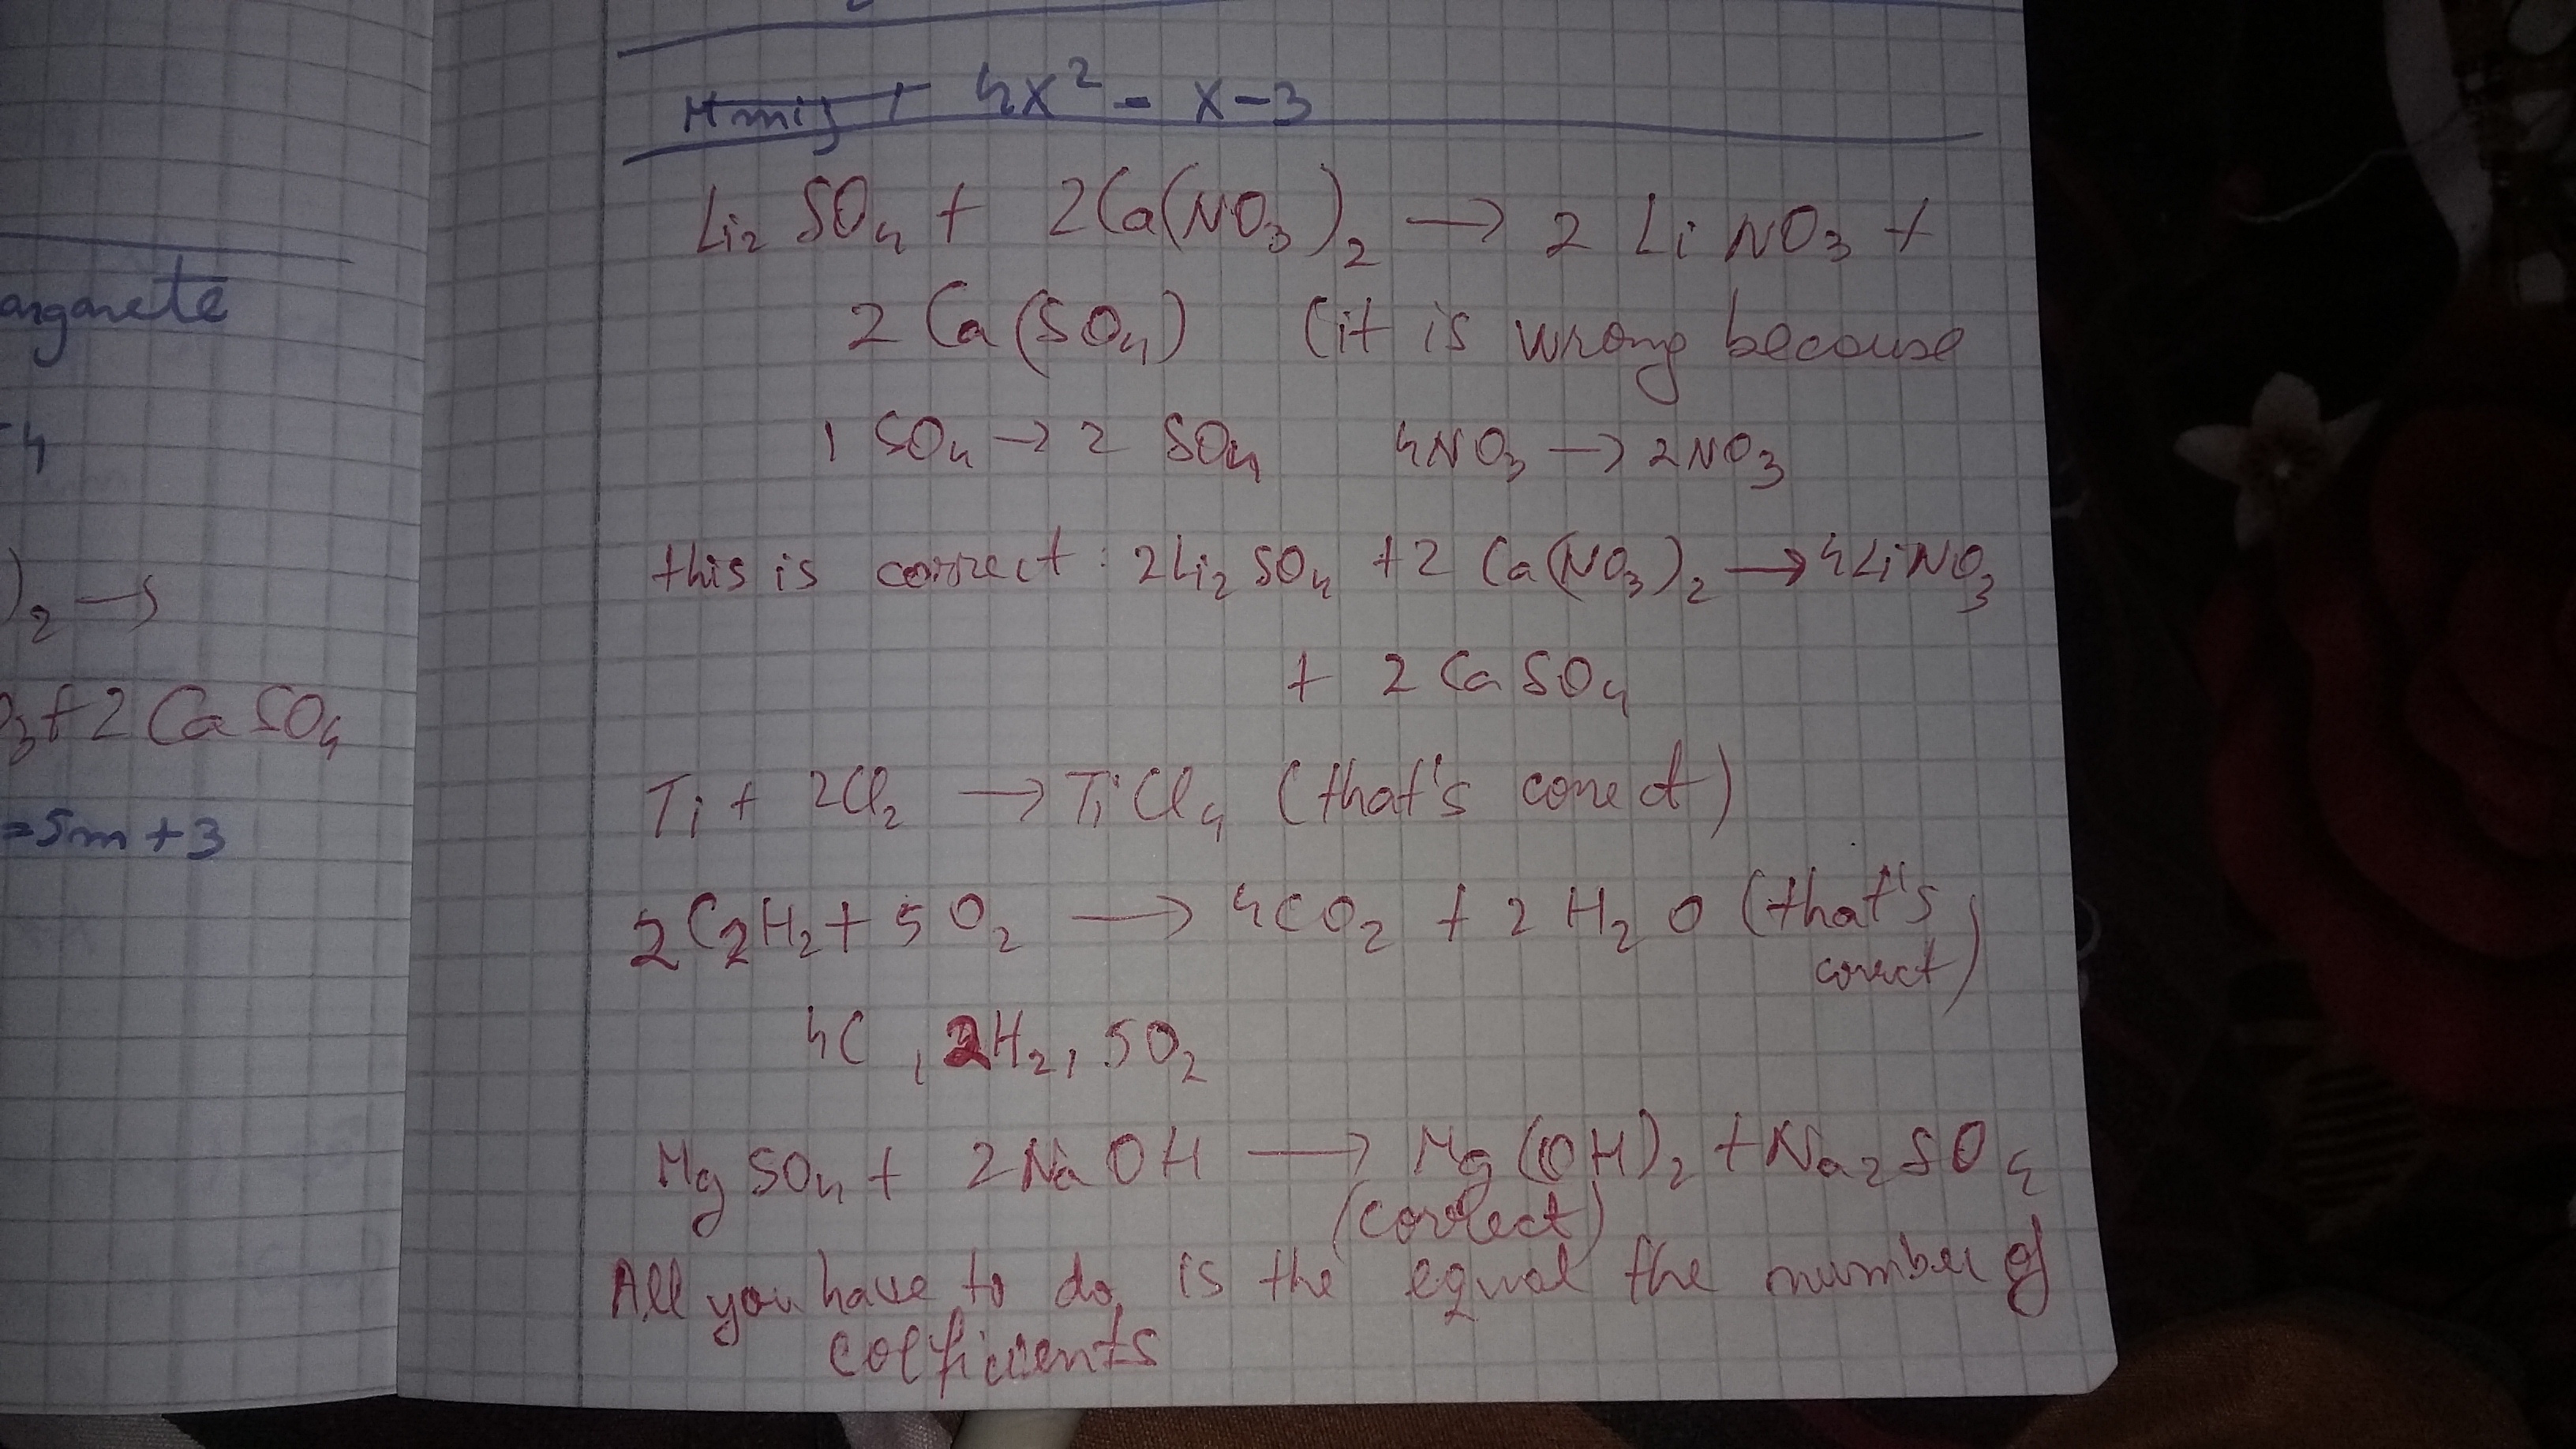 anganete
-4
)₂ →
O₃ + 2 Ca SO₄
= 5m + 3
4x² - x - 3
Li₂ SO₄ + 2Ca(NO₃)₂ → 2 Li NO₃ +
2 Ca (SO₄) (it is wrong because
1 SO₄ → 2 SO₄ 4NO₃ → 2NO₃
this is correct : 2Li₂ SO₄ + 2 Ca(NO₃)₂ → 4LiNO₃
+ 2 Ca SO₄
Ti + 2Cl₂ → TiCl₄ (that's corect)
2 C₂H₂ + 5 O₂ → 4CO₂ + 2 H₂ O (that's
corect)
4C , 2H₂, 5O₂
Mg SO₄ + 2 Na OH → Mg (OH)₂ + Na₂ SO₄
(correct)
All you have to do, is the equal the number of
coefficients